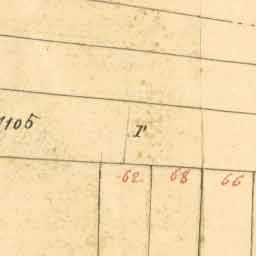 1105 P
62 68 66